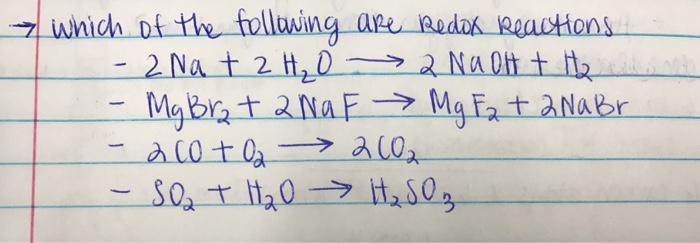 → which of the following are Redox Reactions
- 2 Na + 2 H₂O → 2 NaOH + H₂
- MgBr₂ + 2 NaF → MgF₂ + 2NaBr
- 2CO + O₂ → 2CO₂
- SO₂ + H₂O → H₂SO₃